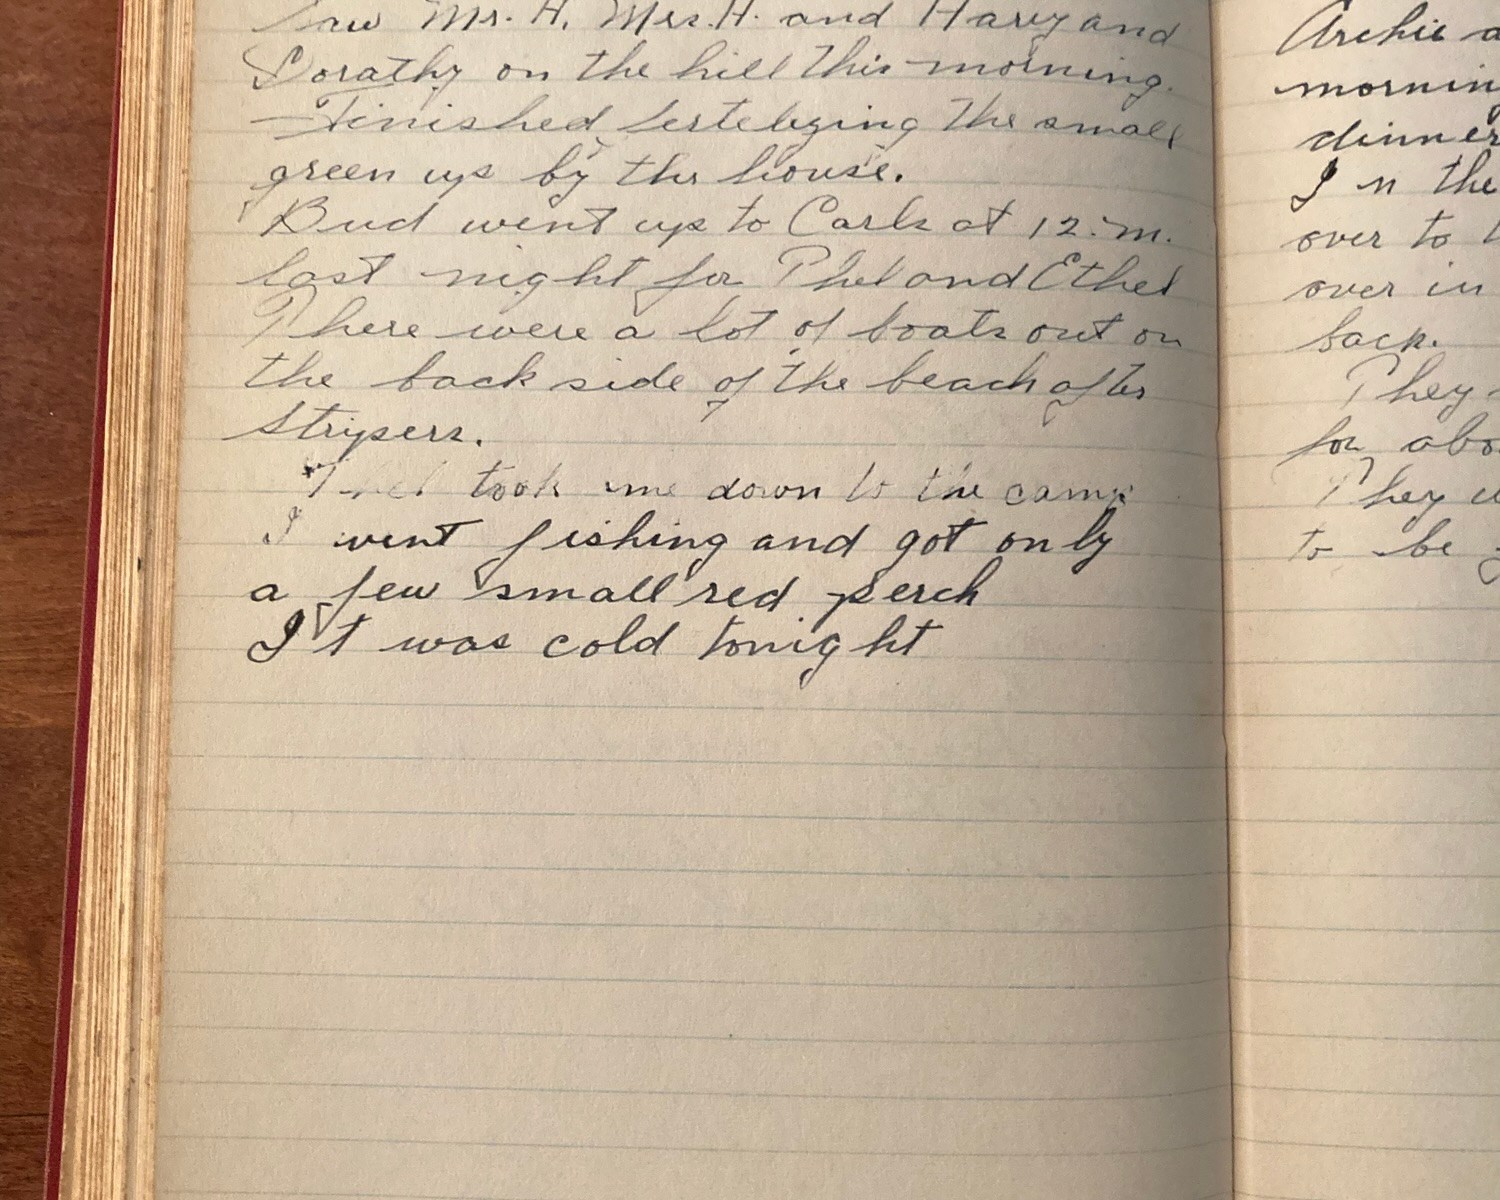 Saw Mr. H. Mrs. H. and Harry and
Dorathy on the hill this morning.
Finished fertelizing the small
green up by the house.
Bud went up to Carls at 12. m.
last night for Phel and Ethel
There were a lot of boats out on
the back side of the beach after
Stripers.
Phel took me down to the camp
I went fishing and got only
a few small red perch
It was cold tonight
Archie
morning
dinner
In the
over to
over in
back.
They
for
They
to be